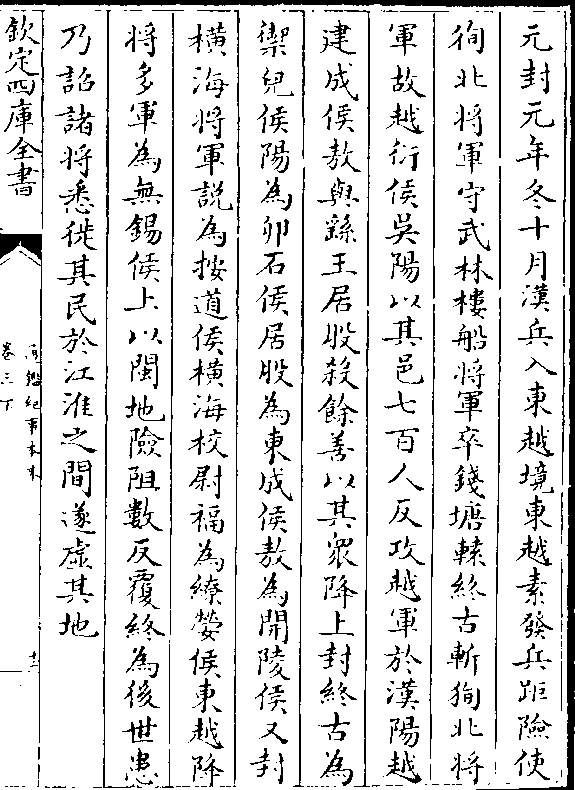 元封元年冬十月漢兵入東越境東越素發兵距險使
徇北將軍守武林樓船將軍卒錢塘轅終古斬徇北將
軍故越衍侯吳陽以其邑七百人反攻越軍於漢陽越
建成侯敖與繇王居股殺餘善以其衆降上封終古為
禦兒侯陽為卯石侯居股為東成侯敖為開陵侯又封
横海將軍説為按道侯横海校尉福為繚嫈侯東越降
將多軍為無錫侯上以閩地險阻數反覆終為後世患
乃詔諸將悉徙其民於江淮之間遂虚其地
欽定四庫全書
通鑑紀事本末
卷三下
十二